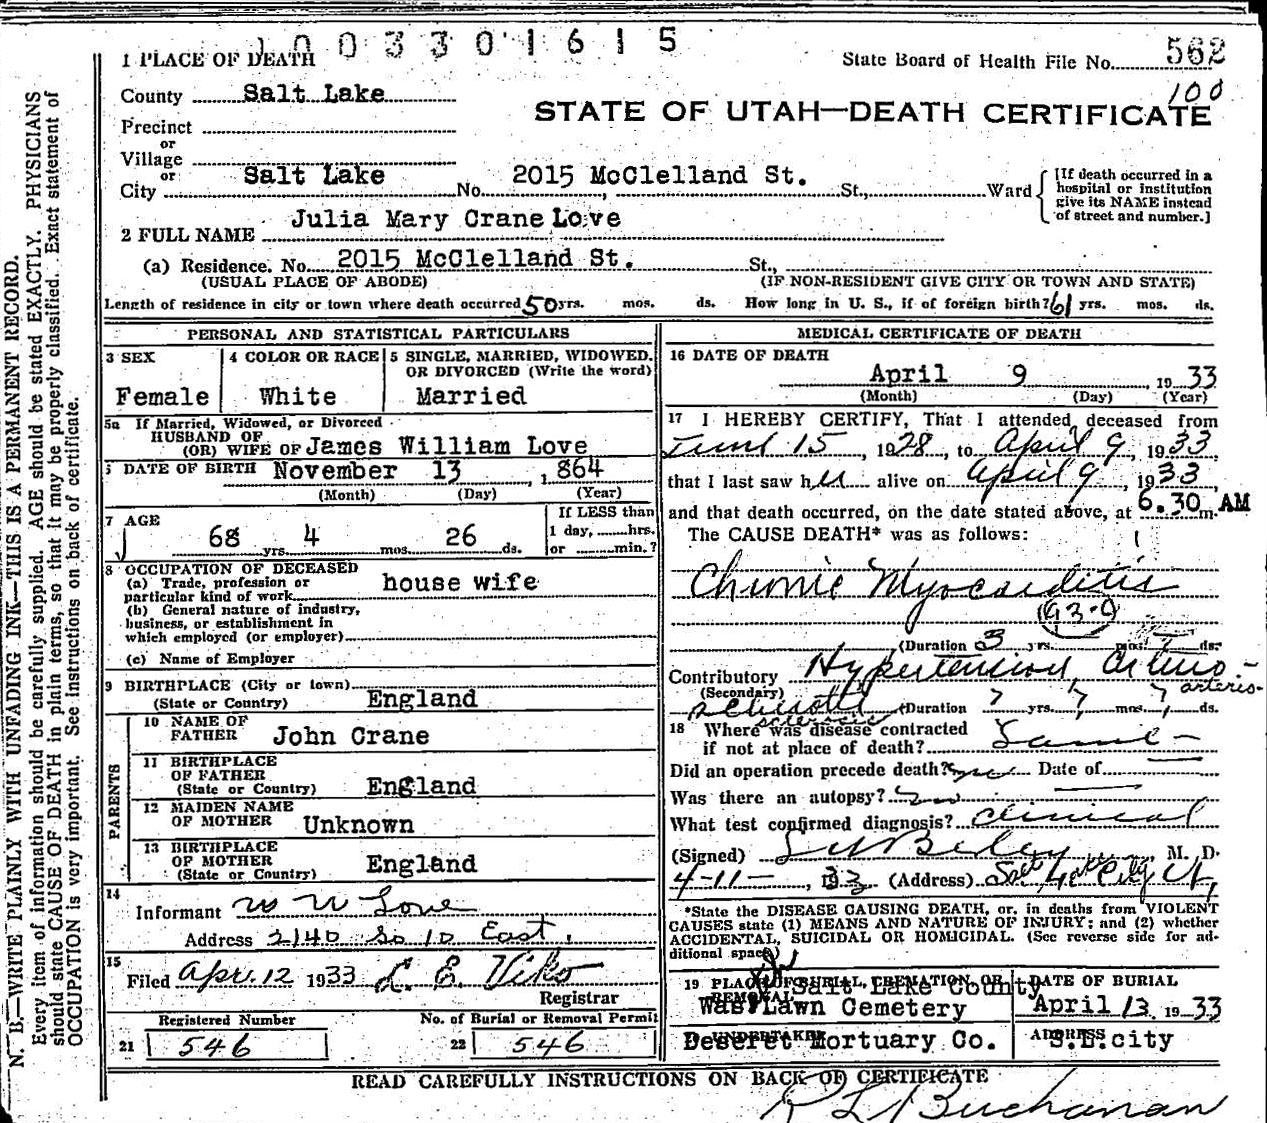 1003301615
1 PLACE OF DEATH
State Board of Health File No. 562
100
County Salt Lake
STATE OF UTAH—DEATH CERTIFICATE
Precinct
or
Village
or
City Salt Lake No. 2015 McClelland St. St., Ward
[If death occurred in a hospital or institution give its NAME instead of street and number.]
2 FULL NAME Julia Mary Crane Love
(a) Residence. No. 2015 McClelland St. St.,
(USUAL PLACE OF ABODE) (IF NON-RESIDENT GIVE CITY OR TOWN AND STATE)
Length of residence in city or town where death occurred 50 yrs. mos. ds. How long in U. S., if of foreign birth? 61 yrs. mos. ds.
PERSONAL AND STATISTICAL PARTICULARS
3 SEX 4 COLOR OR RACE 5 SINGLE, MARRIED, WIDOWED,
OR DIVORCED (Write the word)
Female White Married
5a If Married, Widowed, or Divorced
HUSBAND OF
(OR) WIFE OF James William Love
DATE OF BIRTH November 13, 1864
(Month) (Day) (Year)
7 AGE If LESS than
68 yrs. 4 mos. 26 ds. 1 day, hrs.
or min.?
8 OCCUPATION OF DECEASED
(a) Trade, profession or
particular kind of work house wife
(b) General nature of industry,
business, or establishment in
which employed (or employer)
(c) Name of Employer
9 BIRTHPLACE (City or town)
(State or Country) England
PARENTS
10 NAME OF
FATHER John Crane
11 BIRTHPLACE
OF FATHER
(State or Country) England
12 MAIDEN NAME
OF MOTHER Unknown
13 BIRTHPLACE
OF MOTHER
(State or Country) England
14
Informant W W Love
Address 2140 So 10 East.
15
Filed Apr. 12 1933 L. E. Viko
Registrar
Registered Number No. of Burial or Removal Permit
21 546 22 546
MEDICAL CERTIFICATE OF DEATH
16 DATE OF DEATH
April 9, 1933
(Month) (Day) (Year)
17 I HEREBY CERTIFY, That I attended deceased from
15, 1928, to April 9, 1933,
that I last saw her alive on April 9, 1933,
and that death occurred, on the date stated above, at 6.30 m. AM
The CAUSE DEATH* was as follows:
Chronic Myocarditis
(Duration 3 yrs. mos. ds.
Contributory Hypertension, Arterio-
(Secondary) arterio-
(Duration ? yrs. ? mos. ? ds.
sclerosis
18 Where was disease contracted
if not at place of death? Same —
Did an operation precede death? no Date of
Was there an autopsy? no
What test confirmed diagnosis? Clinical
(Signed) M. D.
4-11-, 1933 (Address) Salt Lake City Ut,
*State the DISEASE CAUSING DEATH, or, in deaths from VIOLENT
CAUSES state (1) MEANS AND NATURE OF INJURY; and (2) whether
ACCIDENTAL, SUICIDAL OR HOMICIDAL. (See reverse side for ad-
ditional space)
19 PLACE OF BURIAL, CREMATION, OR REMOVAL DATE OF BURIAL
Salt Lake County
Was. Lawn Cemetery April 13, 1933
UNDERTAKER ADDRESS
Deseret Mortuary Co. S.L.city
READ CAREFULLY INSTRUCTIONS ON BACK OF CERTIFICATE
R L Buchanan
N. B.—WRITE PLAINLY WITH UNFADING INK—THIS IS A PERMANENT RECORD.
Every item of information should be carefully supplied. AGE should be stated EXACTLY. PHYSICIANS
should state CAUSE OF DEATH in plain terms, so that it may be properly classified. Exact statement of
OCCUPATION is very important. See instructions on back of certificate.